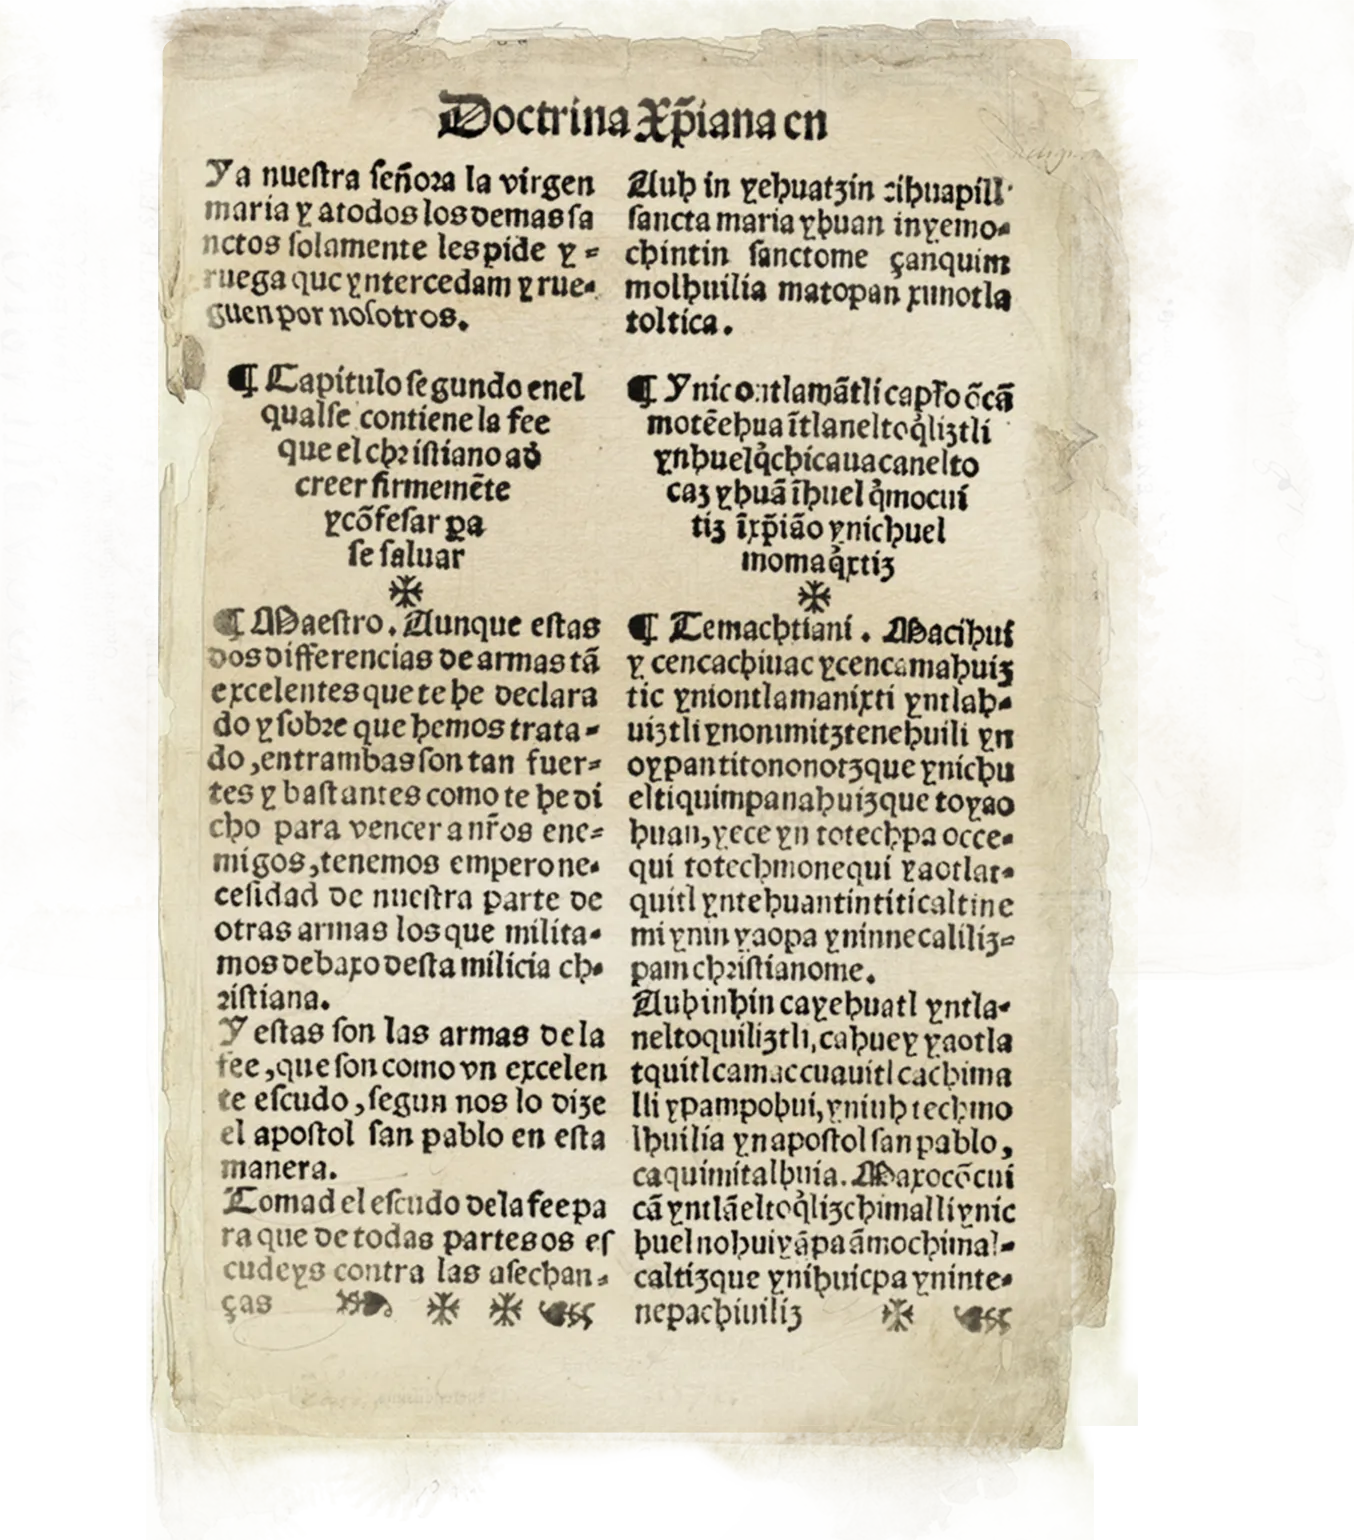 Doctrina Xp̃iana en
Y a nueſtra ſeñora la virgen
maria y atodos los demas ſa
nctos ſolamente les pide y =
ruega que yntercedam y rue=
guen por noſotros.
¶ Capitulo ſegundo enel
qualſe contiene la fee
que el chriſtiano a đ
creer firmemēte
y cōfeſar pa
ſe ſaluar
¶ Maeſtro. Aunque eſtas
dos differencias de armas tā
excelentes que te he declara
do y ſobre que hemos trata=
do, entrambas ſon tan fuer=
tes y baſtantes como te he di
cho para vencer a nr̄os ene=
migos, tenemos empero ne=
ceſidad de nueſtra parte de
otras armas los que milita=
mos debaxo deſta milicia ch=
riſtiana.
Y eſtas ſon las armas dela
fee, que ſon como vn excelen
te eſcudo, ſegun nos lo dize
el apoſtol ſan pablo en eſta
manera.
Tomad el eſcudo dela fee pa
ra que de todas partes os eſ
cudeys contra las aſechan=
ças
Auh in yehuatzin cihuapill
ſancta maria yhuan inyemo=
chintin ſanctome çanquim
molhuilia matopan ximotla
toltica.
¶ Ynic ontlamātli capr̄o ōcā
motēehua ītlaneltoq̉liztli
ynhuelq̉chicauacanelto
caz yhuā īhuel q̉mocui
tiz īxp̄iāo ynichuel
momaq̉xtiz
¶ Temachtiani. Macihui
y cencachiuac ycencamahuiz
tic yniontlamanixti yntlah=
uiztli ynonimitztenehuili yn
oypantitononotzque ynichu
eltiquimpanahuizque toyao
huan, yece yn totechpa occe=
qui totechmonequi yaotlat=
quitl yntehuantintiticaltine
mi ynin yaopa yninnecaliliz=
pam chriſtianome.
Auhinhin cayehuatl yntla=
neltoquiliztli, cahuey yaotla
tquitl camaccuauitl cachima
lli ypampohui, yniuh techmo
lhuilia ynapoſtol ſan pablo,
caquimitalhuia. Maxocōcui
cā yntlāeltoq̉lizchimalli ynic
huelnohuiyāpa āmochimal=
caltizque ynihuicpa yninte=
nepachiuiliz